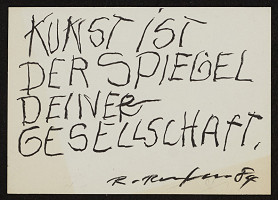 KUNST IST
DER SPIEGEL
DEINER
GESELLSCHAFT.